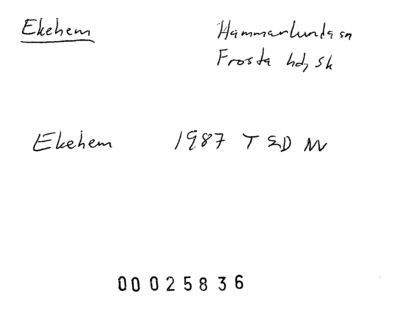 Ekehem
Hammarlunda sn
Frosta hd, Sk
Ekehem 1987 T 2D NV
00025836